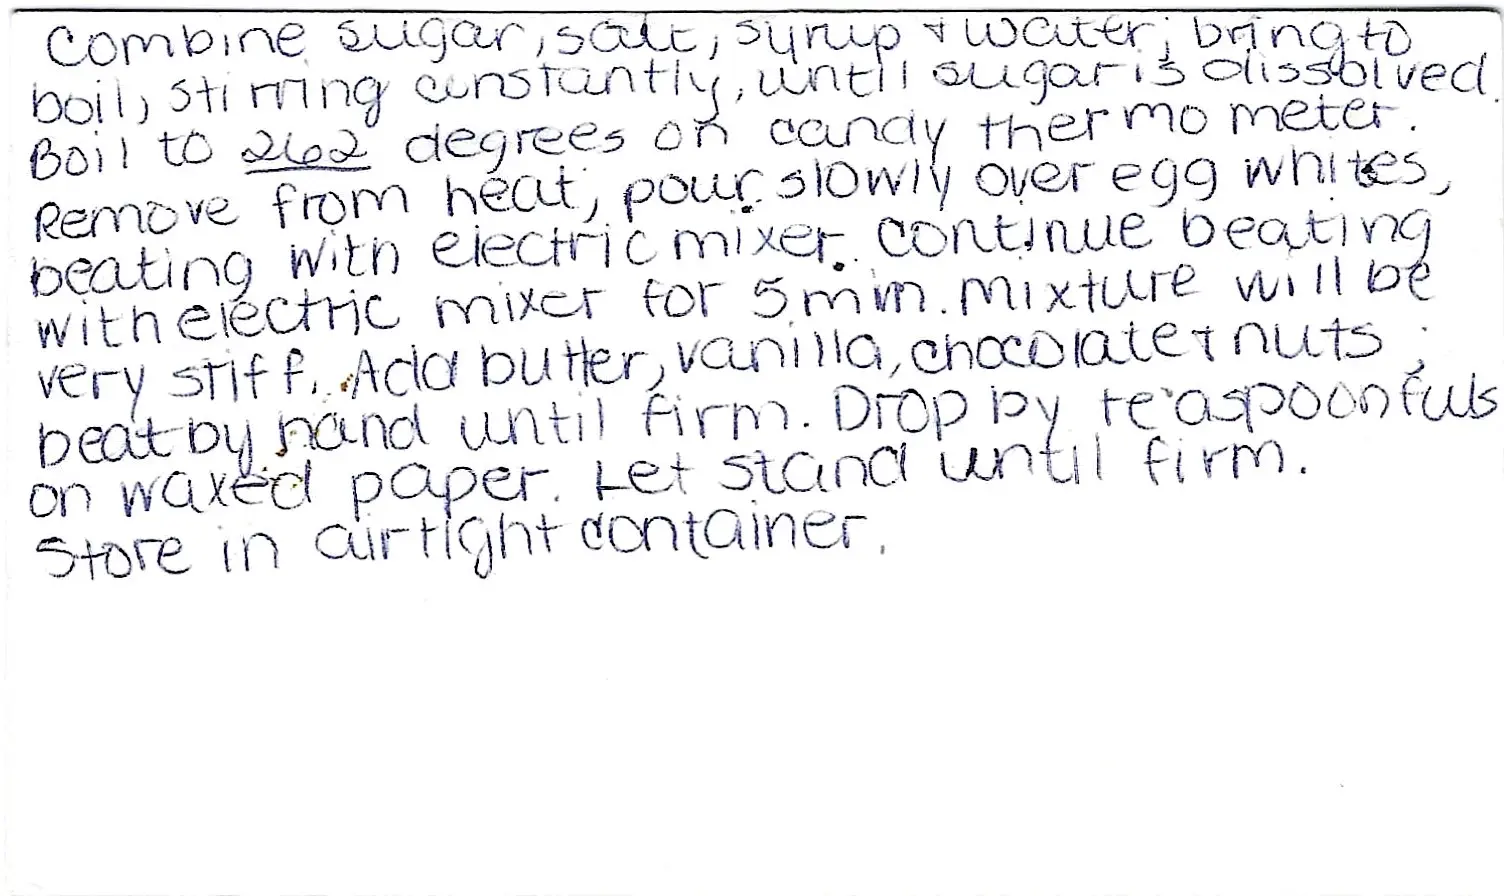 Combine sugar, salt, syrup + water; bring to
boil, stirring constantly, until sugar is dissolved.
Boil to 262 degrees on candy thermometer.
Remove from heat, pour slowly over egg whites,
beating with electric mixer. Continue beating
with electric mixer for 5 min. Mixture will be
very stiff. Add butter, vanilla, chocolate + nuts;
beat by hand until firm. Drop by teaspoonfuls
on waxed paper. Let stand until firm.
Store in airtight container.